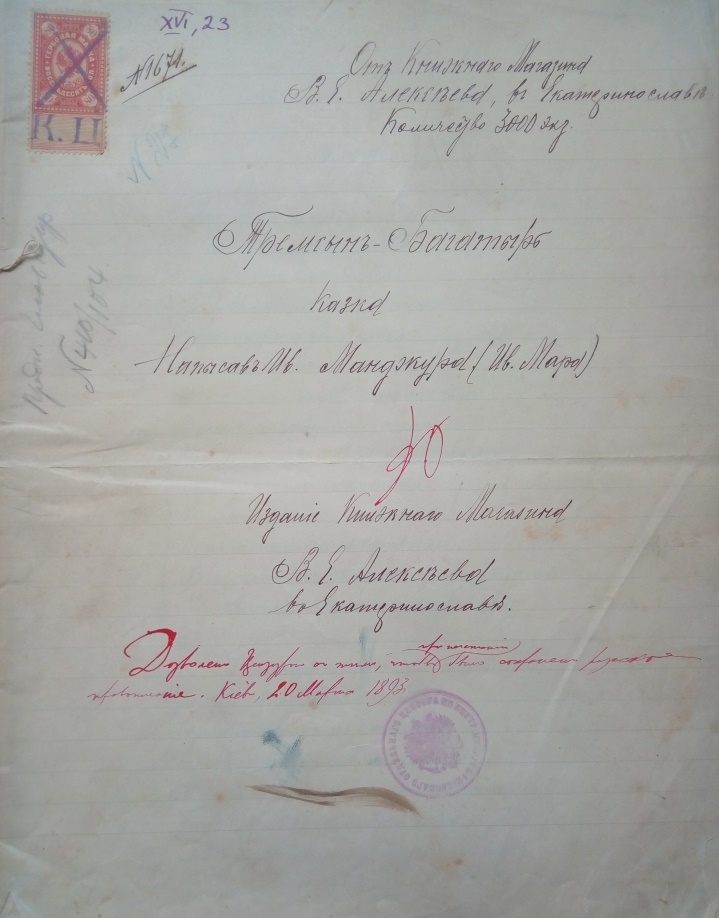 XVI, 23
№1671.
К. Ц
Отъ Книжнаго Магазина
В. Е. Алексѣева, въ Екатеринославѣ.
Количество 3000 экз.
№ 400/104
Тремсынъ-Багатырь
казка
Напысавъ Ив. Манджура (Ив. Мара)
Изданіе Книжнаго Магазина
В. Е. Алексѣева
въ Екатеринославѣ.
Дозволено Цензурою съ тѣмъ, чтобы при печатаніи было сохранено русское
правописаніе. Кіевъ, 20 Марта 1893